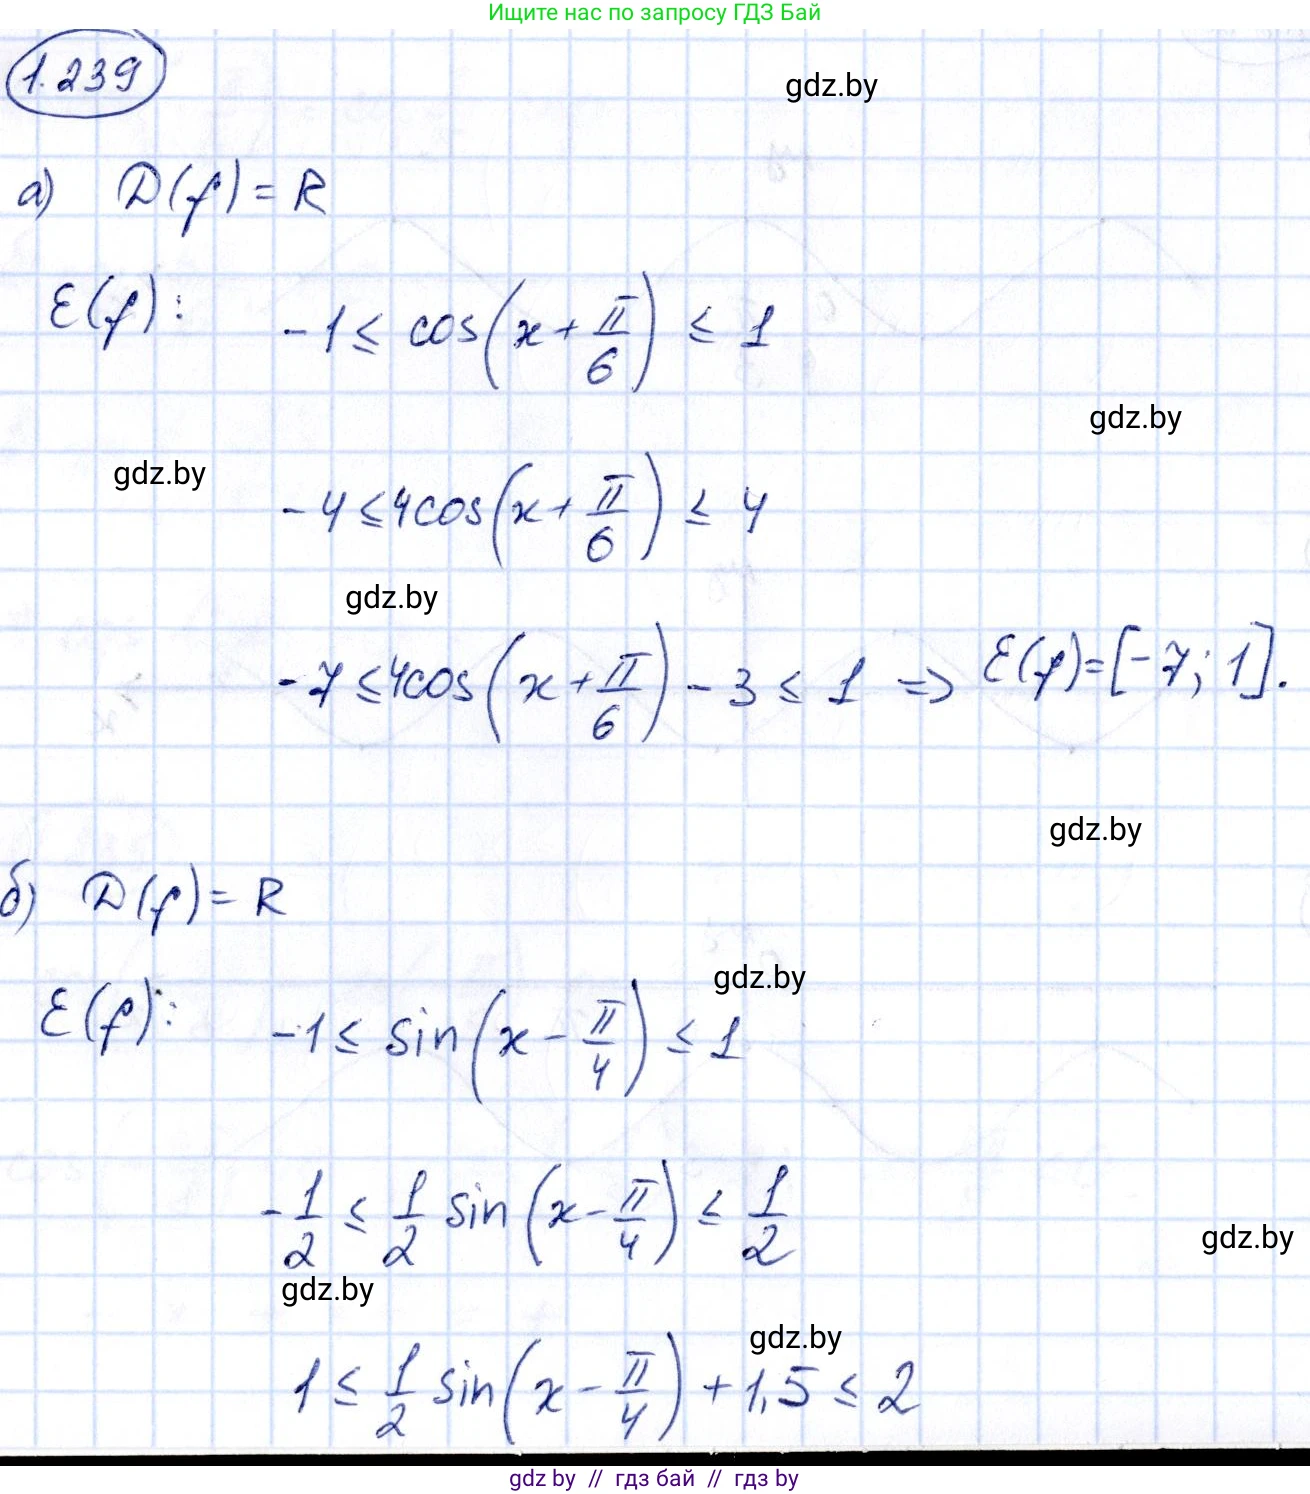 Ищите нас по запросу ГДЗ Бай
1.239
gdz.by
а) D(f) = R
E(f): -1 ≤ cos(x + π/6) ≤ 1
gdz.by
gdz.by
-4 ≤ 4cos(x + π/6) ≤ 4
gdz.by
-7 ≤ 4cos(x + π/6) - 3 ≤ 1 => E(f) = [-7; 1].
gdz.by
б) D(f) = R
gdz.by
E(f): -1 ≤ sin(x - π/4) ≤ 1
-1/2 ≤ 1/2 sin(x - π/4) ≤ 1/2
gdz.by
gdz.by
gdz.by
1 ≤ 1/2 sin(x - π/4) + 1,5 ≤ 2
gdz by // гдз бай // гдз by